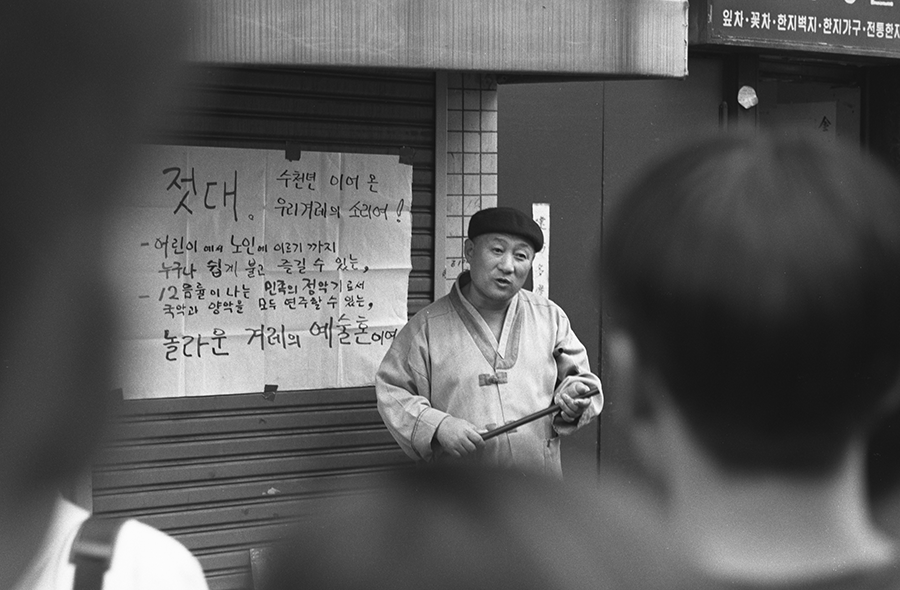 잎차·꽃차·한지벽지·한지가구·전통한지
젓대。
수천년 이어 온
우리겨레의 소리여!
- 어린이에서 노인에 이르기 까지
누구나 쉽게 불고 즐길 수 있는,
- 12음률이 나는 민족의 정악기로서
국악과 양악을 모두 연주할 수 있는,
놀라운 겨레의 예술혼이여